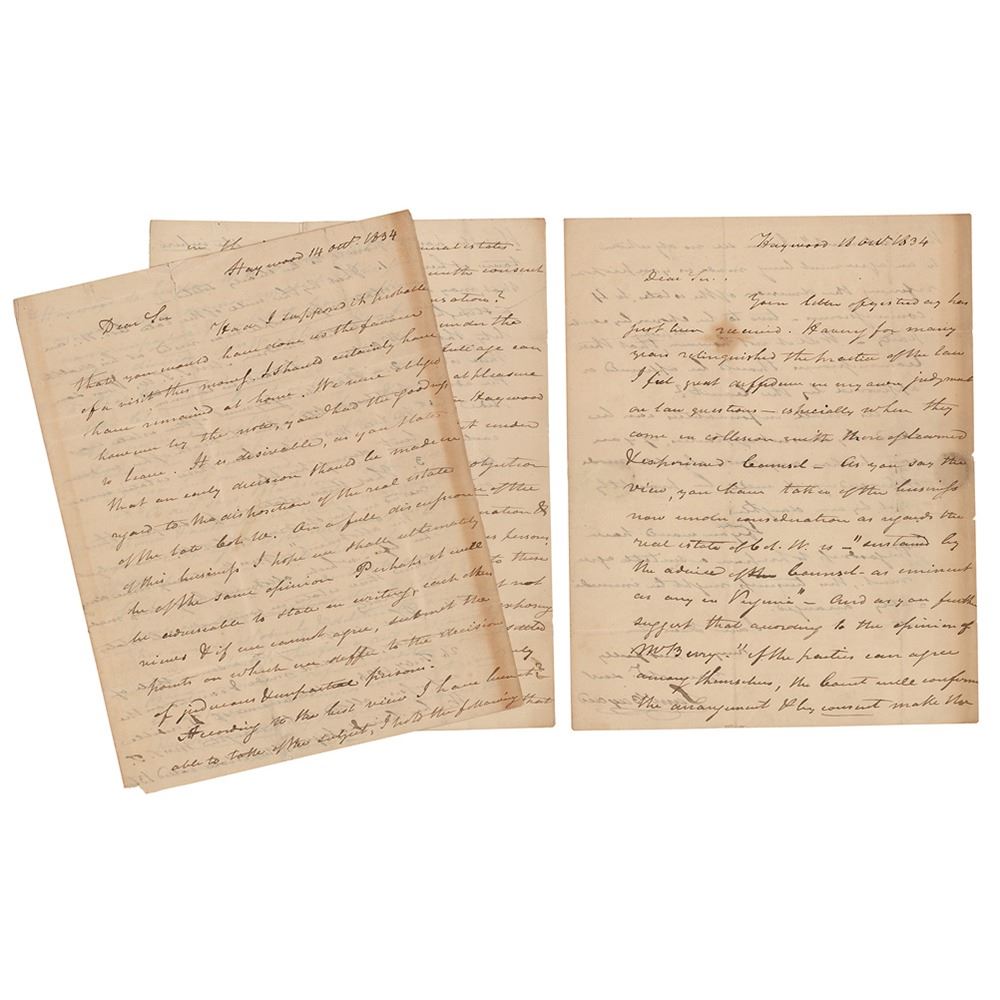 Haywood 14 Octr. 1834
Dear Sir
Had I supposed it probable
that you would have done us the favour
of a visit this morng. I should certainly have
have remained at home. We were obliged
however by the note, you had the goodness
to leave. It is desireable, as you state
that an early decision should be made in
regard to the disposition of the real estate
of the late Col. W. On a full discussion
of this business I hope we shall ultimately
be of the same opinion Perhaps it will
be adviseable to state in writing, each others
views & if we cannot agree, submit the
points on which we differ to the decision
of judicious & impartial persons.
According to the best view I have been
able to take of the subject, I hold the following that
in th
real estate
with the consent
under the
can
at pleasure
Haywood
under
objection
of the
&
persons
to these
not
exposing
Haywood 18 Octr. 1834
Dear Sir.
Your letter of yesterday has
just been received. Having for many
years relinquished the practice of the law
I feel great diffidence in my own judgment
on law questions – especially when they
come in collision with those of learned
& experienced Counsel – As you say the
view, you have taken of the business
now under consideration as regards the
real estate of Col. W. is – "sustained by
the advice of Counsel – as eminent
as any in Virginia" – And as you further
suggest that according to the opinion of
Mr Berry "if the parties can agree
among themselves, the Court will confirm
the arrangement & by consent make the